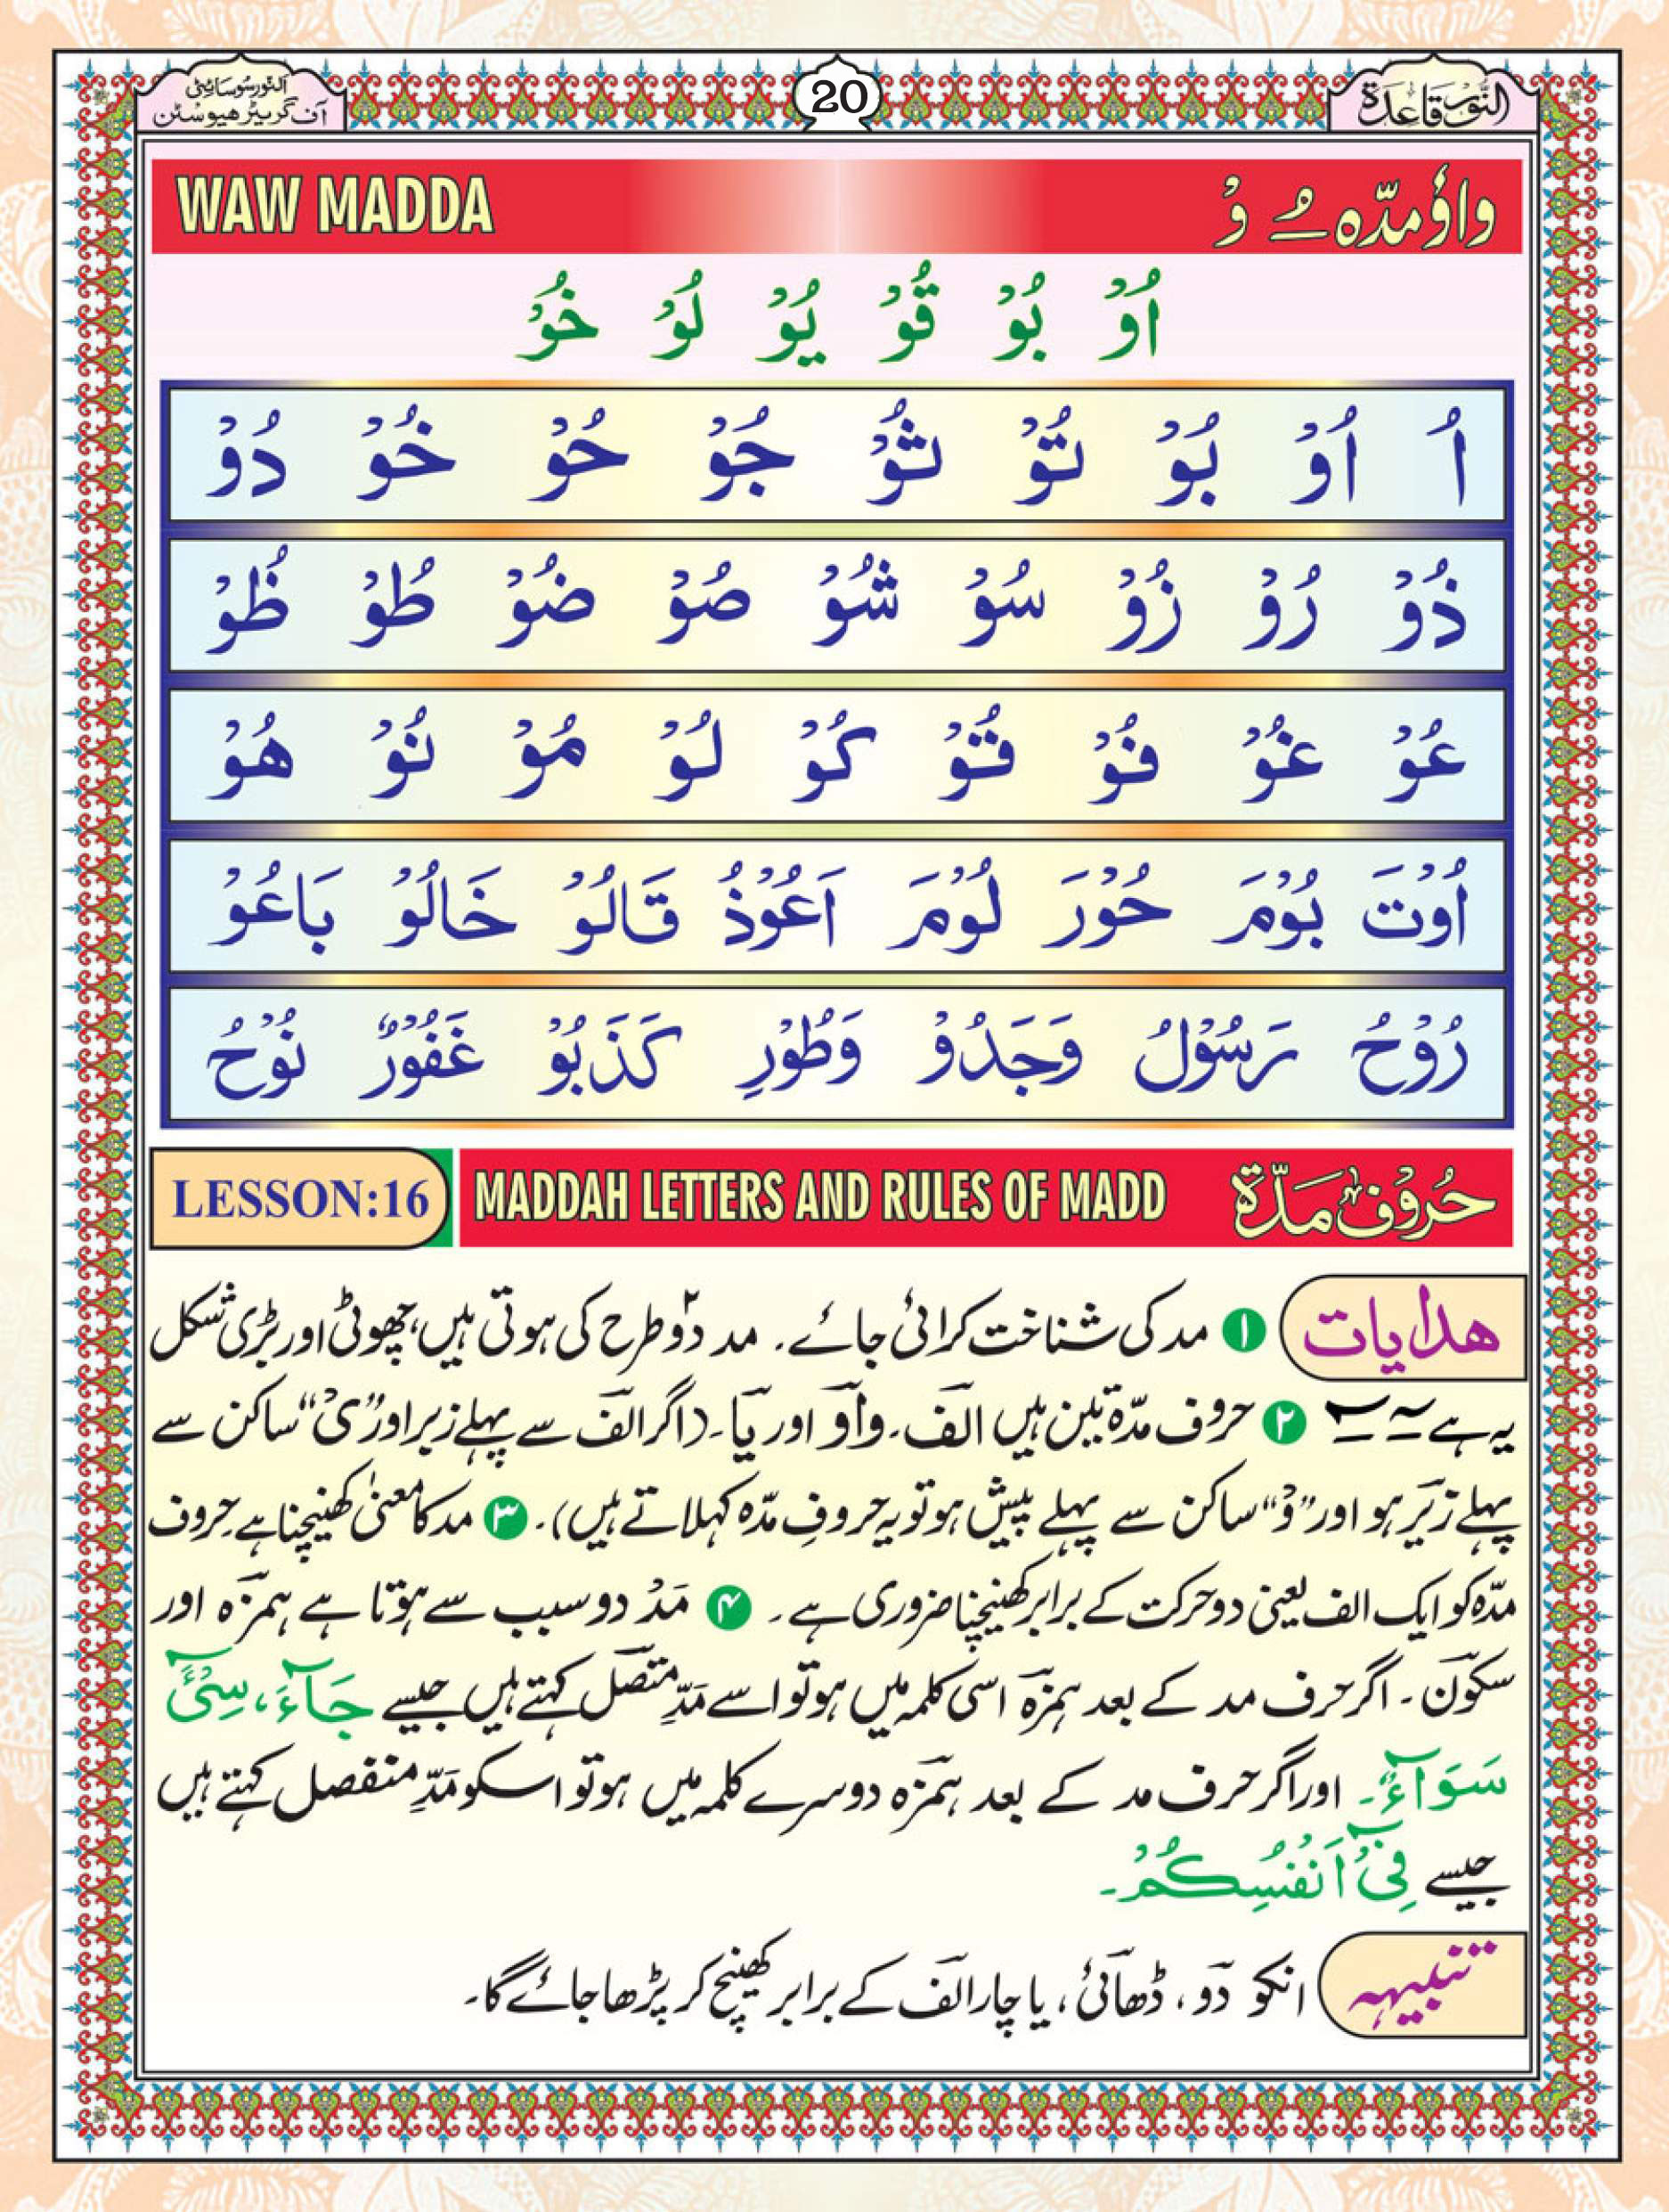 النور قاعدة
20
النور سوسائٹی
آف گریٹر ھیوسٹن
WAW MADDA واؤ مدّہ ـُ وْ
اُوْ بُوْ قُوْ يُوْ لُوْ خُوْ
اُ اُوْ بُوْ تُوْ ثُوْ جُوْ حُوْ خُوْ دُوْ
ذُوْ رُوْ زُوْ سُوْ شُوْ صُوْ ضُوْ طُوْ ظُوْ
عُوْ غُوْ فُوْ قُوْ كُوْ لُوْ مُوْ نُوْ هُوْ
اُوْتَ بُوْمَ حُوْرَ لُوْمَ اَعُوْذُ قَالُوْ خَالُوْ بَاعُوْ
رُوْحُ رَسُوْلُ وَجَدُوْ وَطُوْرِ كَذَبُوْ غَفُوْرٌ نُوْحُ
LESSON:16 MADDAH LETTERS AND RULES OF MADD حُرُوْف مَدّة
ھدایات ۱ مد کی شناخت کرائی جائے۔ مد دو۲ طرح کی ہوتی ہیں، چھوٹی اور بڑی شکل
یہ ہے ۲ حروف مدّہ تین ہیں الف۔ واو اور یا۔ (اگر الف سے پہلے زبر اور "یْ" ساکن سے
پہلے زیر ہو اور "وْ" ساکن سے پہلے پیش ہو تو یہ حروفِ مدّہ کہلاتے ہیں)۔ ۳ مد کا معنیٰ کھینچنا ہے حروف
مدّہ کو ایک الف یعنی دو حرکت کے برابر کھینچنا ضروری ہے۔ ۴ مَدْ دو سبب سے ہوتا ہے ہمزہ اور
سکون۔ اگر حرف مد کے بعد ہمزہ اسی کلمہ میں ہو تو اسے مَدِّ متصل کہتے ہیں جیسے جَآءَ، سِیْٓئَ
سَوَآءٌ۔ اور اگر حرف مد کے بعد ہمزہ دوسرے کلمہ میں ہو تو اسکو مَدِّ منفصل کہتے ہیں
جیسے فِیْٓ اَنْفُسِكُمْ۔
تنبیہہ انکو دو، ڈھائی، یا چار الف کے برابر کھینچ کر پڑھا جائے گا۔